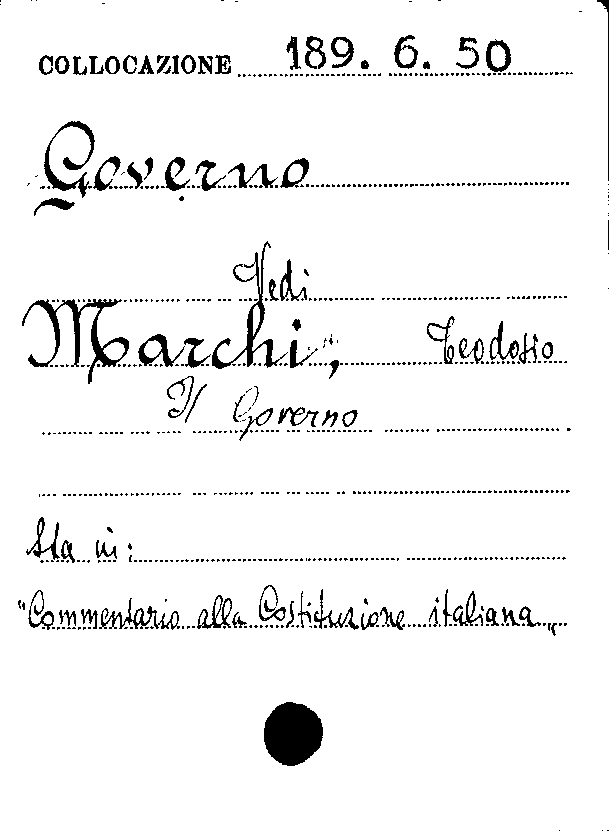 COLLOCAZIONE 189. 6. 50
Governo
Vedi
Marchi, Teodosio
Il Governo
Sta in:
"Commentario alla Costituzione italiana„